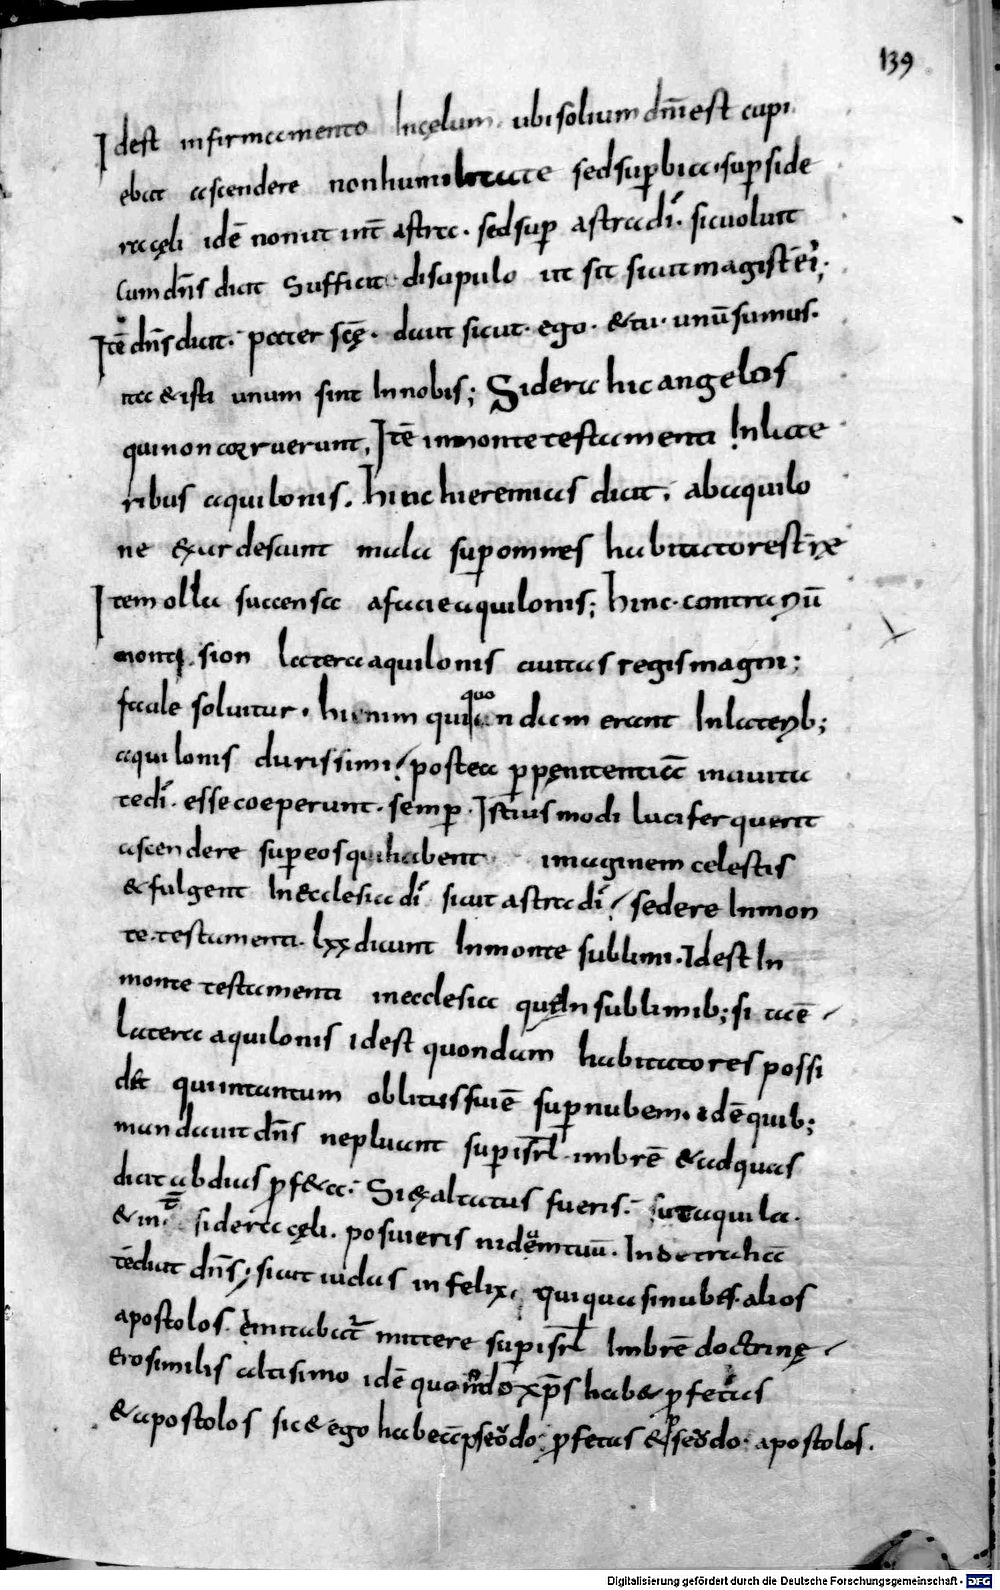 139
Idest infirmamento Incęlum. ubisolium dn̄iest cupi
ebat ascendere nonhumilitate sedsuꝑbia. suꝑside
racęli idē nonut int̄ astra. sedsuꝑ astradī. sicuolunt
Cum dn̄s dicit Sufficit discipulo ut sit sicut magist̄ eī;
Itē dn̄s dicit. pater scē. dicit sicut. ego. &tu. unū sumus.
ita &isti unum sint Innobis; Sidera hic angelos
quinon corruerunt, Itē inmonte testamenti Inlate
ribus aquilonis. hinc hieremias dicit. abaquilo
ne exardescunt mala suꝑomnes habitatorest̄rę
Item olla succensa afacieaquilonis; hinc. contrariū
montis. sion lateraaquilonis ciuitas regismagni;
facile soluitur. hi enim qui quondam erant Inlaterib;
aquilonis durissimi. postea ꝑpęnitentiā inciuita
tedī. essecoeperunt. semꝑ. Istiusmodi lucifer querit
ascendere suꝑeosquihabent imaginem celestis
&fulgent Inecclesia dī sicut astradī. sedere Inmon
te. testamenti. lxx dicunt Inmonte sublimi. Idest In
monte testamenti inecclesia quęIn sublimib; si tacē
latera aquilonis idest quondam habitatores possi
det quiintantum oblitusfuiē suꝑnubem. idē quib;
mandauit dn̄s nepluant suꝑisrl imbrē &adquas
dicit abdias ꝓf&a. Si exaltatus fueris. sicutaquila.
&int̄ sidera cęli. posuieris nidum tuū. Inde trahā
tēdicit dn̄s; sicut iudas infelix, quiquasinubes. alios
apostolos. emitabat̄ mittere suꝑisrl Imbrē doctrinę
Erosimilis altisimo idē quomodo xp̄s hab& ꝓfetas
&apostolos sic&ego habeā pseudo. ꝓfetas &pseudo. apostolos.
Digitalisierung gefördert durch die Deutsche Forschungsgemeinschaft - DFG